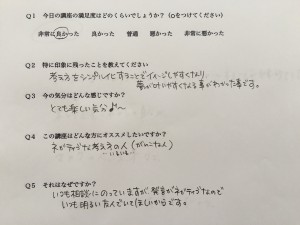 Q1 今日の講座の満足度はどのくらいでしょうか?(○をつけてください)
非常に良かった 良かった 普通 悪かった 非常に悪かった
Q2 特に印象に残ったことを教えてください
考え方をシンプルにすることでイメージしやすくなり
夢が叶いやすくなる事がわかった事です。
Q3 今の気分はどんな感じですか?
とても楽しい気分♪〜
Q4 この講座はどんな方にオススメしたいですか?
ネガティブな考え方の人(がんこな人)
Q5 それはなぜですか?
いつも相談にのっていますが、発言がネガティブなので
いつも明るい友人でいてほしいからです。